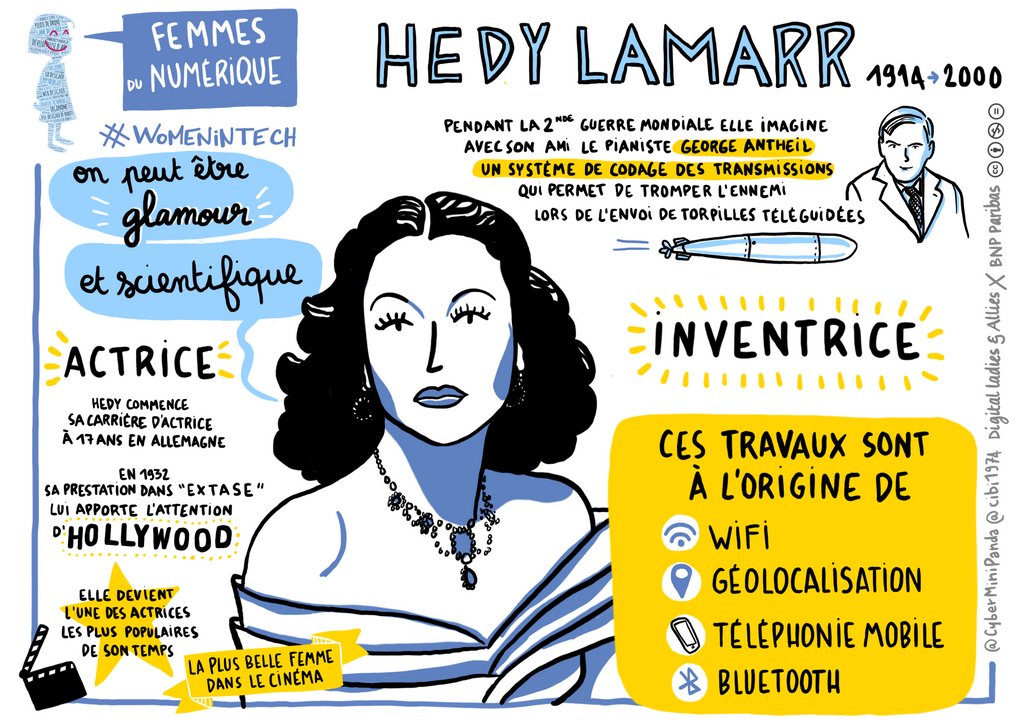 FEMMES
DU NUMÉRIQUE
#WOMENINTECH
HEDY LAMARR
1914→2000
PENDANT LA 2NDE GUERRE MONDIALE ELLE IMAGINE
AVEC SON AMI LE PIANISTE GEORGE ANTHEIL
UN SYSTÈME DE CODAGE DES TRANSMISSIONS
QUI PERMET DE TROMPER L'ENNEMI
LORS DE L'ENVOI DE TORPILLES TÉLÉGUIDÉES
on peut être
glamour
et scientifique
ACTRICE
HEDY COMMENCE
SA CARRIÈRE D'ACTRICE
À 17 ANS EN ALLEMAGNE
EN 1932
SA PRESTATION DANS "EXTASE"
LUI APPORTE L'ATTENTION
D'HOLLYWOOD
ELLE DEVIENT
L'UNE DES ACTRICES
LES PLUS POPULAIRES
DE SON TEMPS
LA PLUS BELLE FEMME
DANS LE CINÉMA
INVENTRICE
CES TRAVAUX SONT
À L'ORIGINE DE
WIFI
GÉOLOCALISATION
TÉLÉPHONIE MOBILE
BLUETOOTH
@CyberMiniPanda @cibi1974 Digital ladies & Allies X BNP Paribas